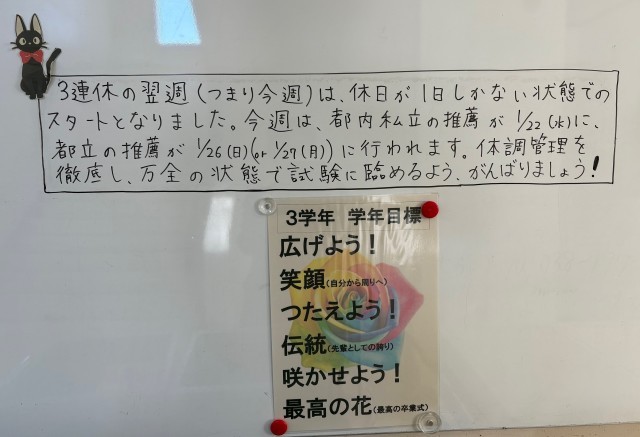 3連休の翌週(つまり今週)は、休日が1日しかない状態での
スタートとなりました。今週は、都内私立の推薦が1/22(水)に、
都立の推薦が1/26(日)(or 1/27(月))に行われます。体調管理を
徹底し、万全の状態で試験に臨めるよう、がんばりましょう!
3学年 学年目標
広げよう!
笑顔(自分から周りへ)
つたえよう!
伝統(先輩としての誇り)
咲かせよう!
最高の花(最高の卒業式)